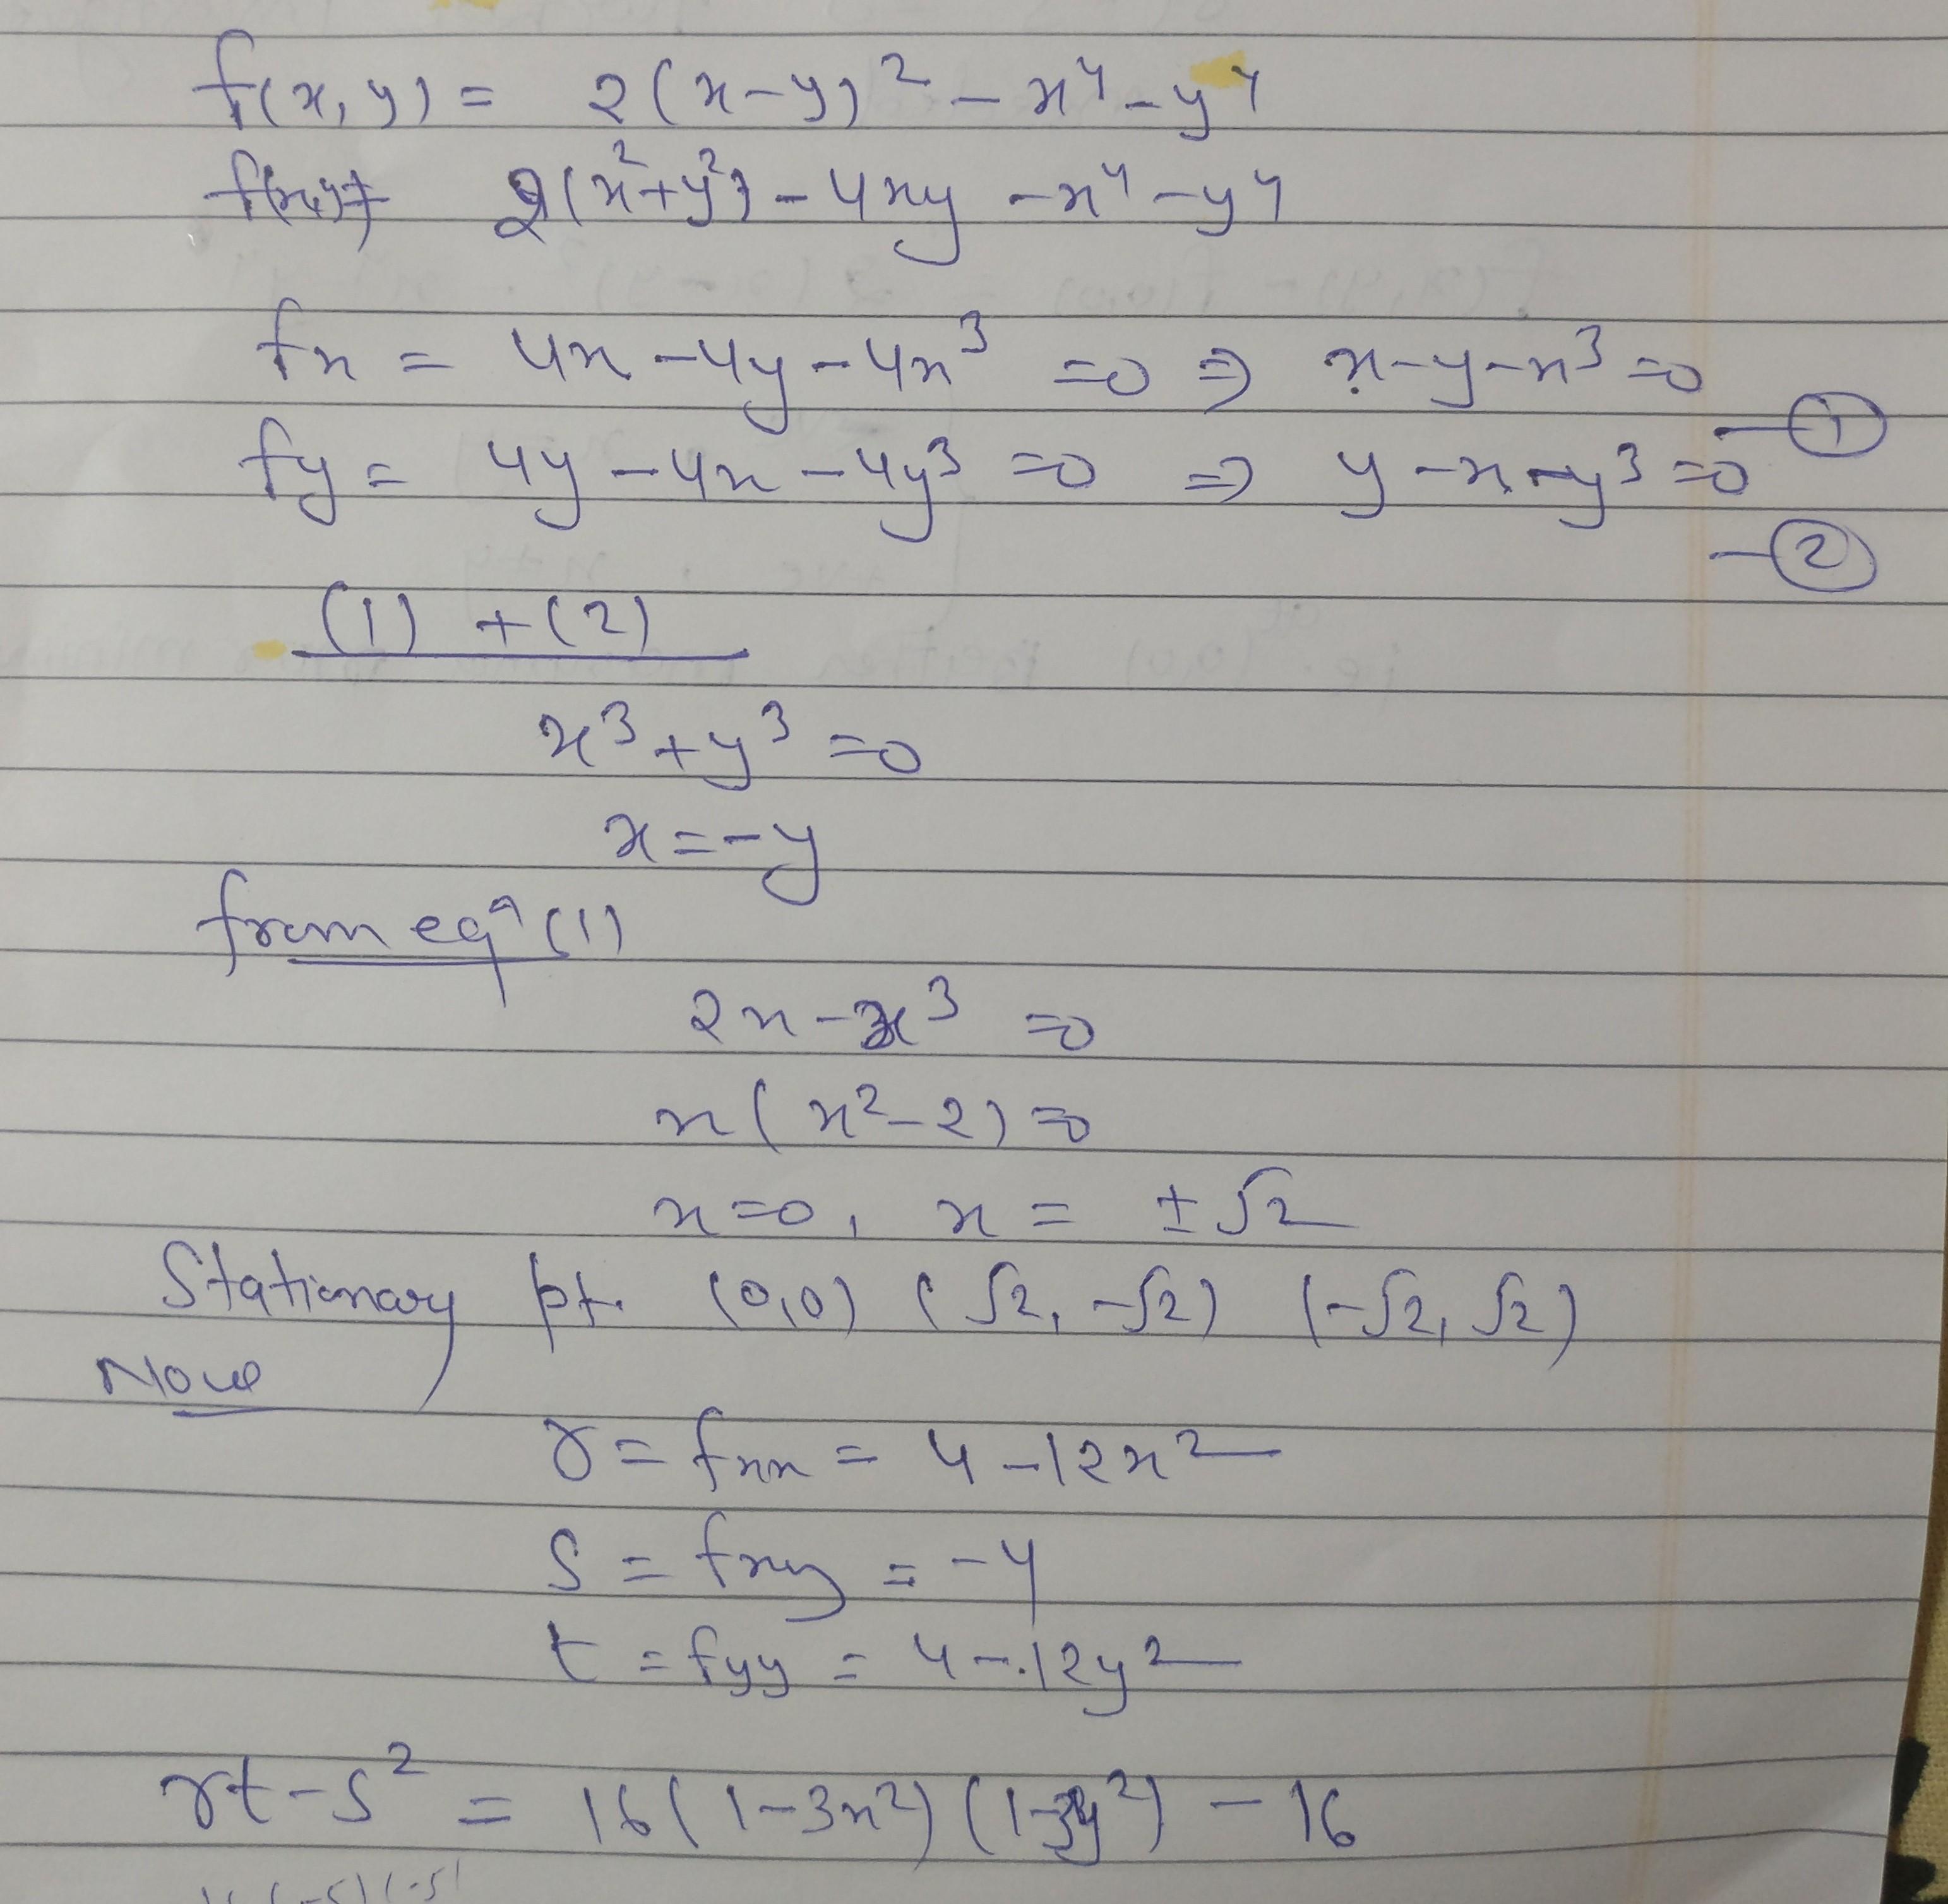 f(x, y) = 2(x-y)² - x⁴ - y⁴
2(x²+y²) - 4xy - x⁴ - y⁴
fx = 4x - 4y - 4x³ = 0 ⇒ x - y - x³ = 0 — ①
fy = 4y - 4x - 4y³ = 0 ⇒ y - x - y³ = 0 — ②
(1) + (2)
x³ + y³ = 0
x = -y
from eqⁿ (1)
2x - x³ = 0
x(x² - 2) = 0
x = 0, x = ±√2
Stationary pt. (0,0) (√2, -√2) (-√2, √2)
Now
r = fxx = 4 - 12x²
s = fxy = -4
t = fyy = 4 - 12y²
rt - s² = 16(1-3x²)(1-3y²) - 16